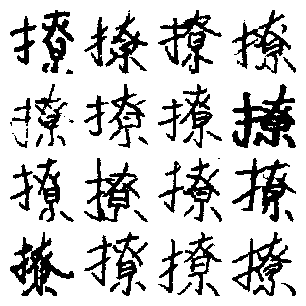 撩撩撩撩
撩撩撩撩
撩撩撩撩
撩撩撩撩